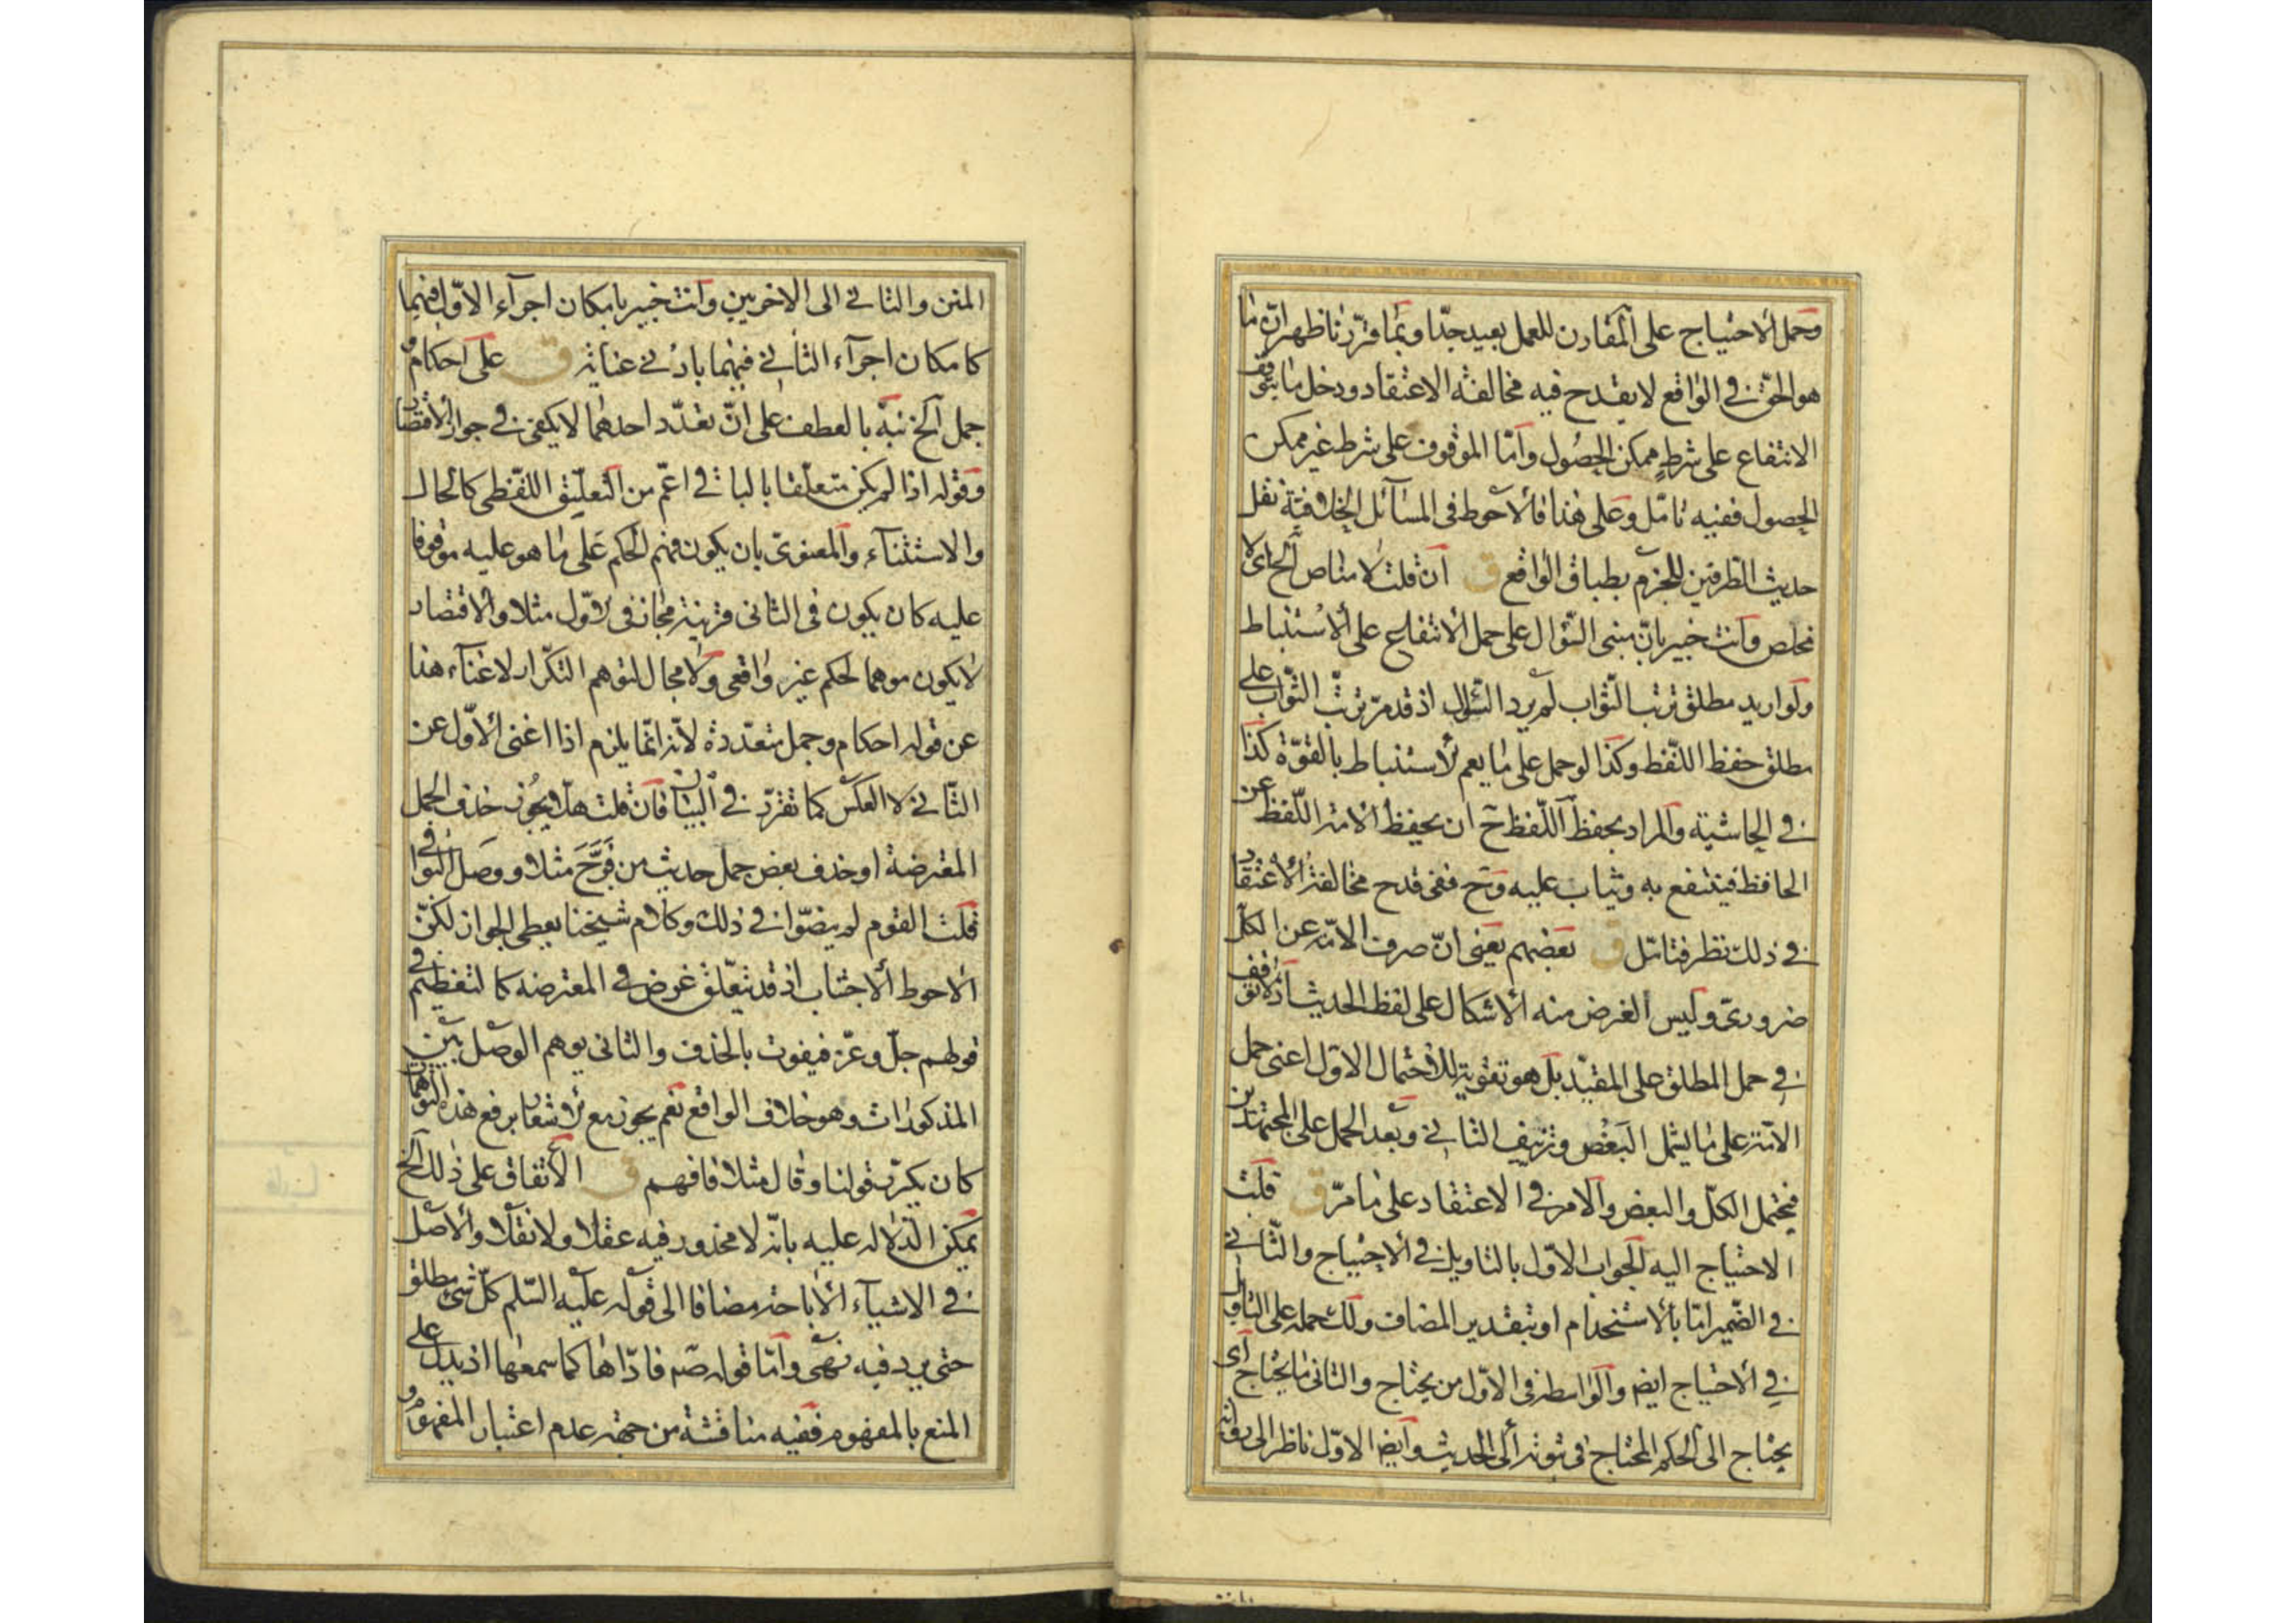 وحمل الاحتياج على المقارن للعمل بعيد جدّا وبما قرّرنا ظهر انّ ما
هو الحقّ في الواقع لا يقدح فيه مخالفته الاعتقاد ودخل ما يتوقّف
الانتفاع على شرط ممكن الحصول وامّا الموقوف على شرط غير ممكن
الحصول ففيه تامّل وعلى هذا فالاحوط في المسائل الخلافيّة نقل
حديث الطرفين للجزم بطباق الواقع ق ان قلت لا مناص الخ اى لا
مخلص وانت خبير بانّ مبنى السّؤال على حمل الانتفاع على الاستنباط
ولو اريد مطلق ترتب الثّواب لم يرد السّؤال اذ قد مرّ ترتّب الثّواب على
مطلق حفظ اللّفظ وكذا لو حمل على ما يعم الاستنباط بالقوّة كذا
في الحاشية والمراد بحفظ اللّفظ ح ان يحفظ الامة اللّفظ عن
الحافظ فينتفع به ويثاب عليه وح ففى قدح مخالفة الاعتقاد
في ذلك نظر فتامّل ق بعضهم يعنى انّ صرف الامّة عن الكلّ
ضرورىّ وليس الغرض منه الاشكال على لفظ الحديث اذ لا توقف
في حمل المطلق على المقيّد بل هو تقوية للاحتمال الاوّل اعنى حمل
الامّة على ما يشمل البعض وتزييف الثاني وبعد الحمل على المجتهدين
فيحتمل الكلّ والبعض والامر في الاعتقاد على ما مرّ ق قلت
الاحتياج اليه الجواب الاوّل بالتاويل في الاحتياج والثّاني
في الضّمير امّا بالاستخدام او بتقدير المضاف ولك حمله على التاويل
في الاحتياج ايضا والواسطة في الاوّل من يحتاج والثانى ما يحتاج اى
يحتاج الى الحكم المحتاج في ثبوته الى الحديث وايضا الاوّل ناظر الى رواية
المتن والثاني الى الاخريين وانت خبير بامكان اجراء الاوّل فيهما
كامكان اجراء الثاني فيهما بادنى عناية ق على احكام و
جمل الخ نبّه بالعطف على انّ تعدّد احدهما لا يكفى في جواز الاقتصار
وقوله اذا لم يكن متعلّقا بالباقي اعمّ من التعليق اللّفظى كالحال
والاستثناء والمعنوىّ بان يكون فهم الحكم على ما هو عليه موقوفا
عليه كان يكون في الثانى قرينة مجاز في الاوّل مثلا والاقتصار
لا يكون موهما لحكم غير واقعى ولا مجال لتوهم التكرار لاغناء هذا
عن قوله احكام وجمل متعدّدة لانّه انّما يلزم اذا اغنى الاوّل عن
الثّاني لا العكس كما تقرّر في البيان فان قلت هل يجوز حذف الجمل
المعترضة او حذف بعض جمل حديث من مثلا ووصل البواقى
قلت القوم لم ينصّوا في ذلك وكلام شيخنا يعطى الجواز لكنّ
الاحوط الاجتناب اذ قد يتعلّق غرض في المعترضه كالتعظيم في
قولهم جلّ وعزّ فيفوت بالحذف والثانى يوهم الوصل بين
المذكورات وهو خلاف الواقع نعم يجوز مع الاشعار برفع هذا التوهم
كان يكرّر قولنا وقال مثلا فافهم ق الاتفاق على ذلك الخ
يمكن الدّلاله عليه بانّه لا محذور فيه عقلا ولا نقلا والاصل
في الاشياء الاباحة مضافا الى قوله عليه السّلم كلّ شئ مطلق
حتى يرد فيه نهى وامّا قوله صم فادّاها كما سمعها اذ يدل على
المنع بالمفهوم ففيه مناقشة من جهة عدم اعتبار المفهوم و